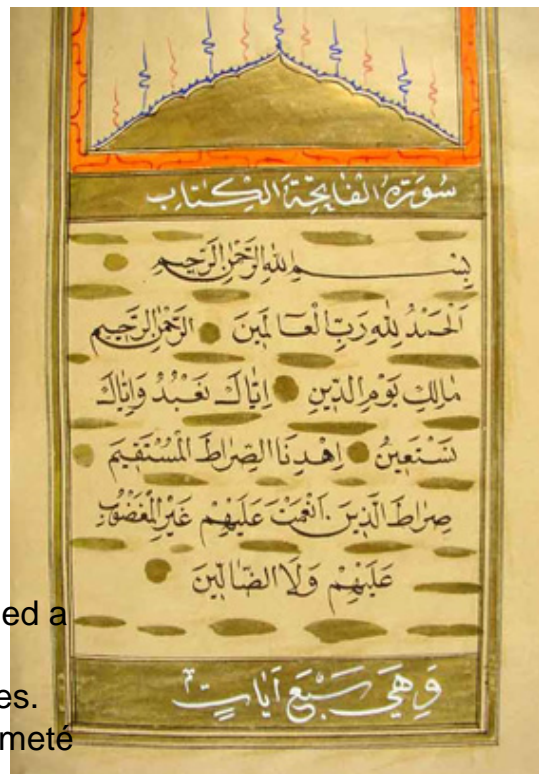 سُورَةُ الْفَاتِحَةِ الْكِتَابِ
بِسْمِ اللهِ الرَّحْمٰنِ الرَّحِيمِ
اَلْحَمْدُ لِلهِ رَبِّ الْعَالَمِينَ الرَّحْمٰنِ الرَّحِيمِ
مَالِكِ يَوْمِ الدِّينِ اِيَّاكَ نَعْبُدُ وَاِيَّاكَ
نَسْتَعِينُ اِهْدِنَا الصِّرَاطَ الْمُسْتَقِيمَ
صِرَاطَ الَّذِينَ اَنْعَمْتَ عَلَيْهِمْ غَيْرِ الْمَغْضُوبِ
عَلَيْهِمْ وَلَا الضَّالِّينَ
وَهِيَ سَبْعَ اٰيَاتٍ
ed a
es.
meté